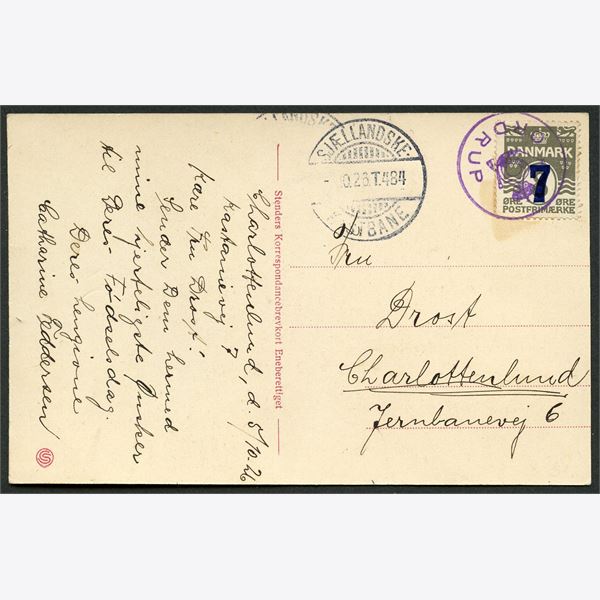 Charlottenlund, d. 5/10. 26
Kastanievej 7
Kære Fru Drost!
Sender Dem herved
mine hjerteligste Ønsker
til Deres Fødselsdag.
Deres hengivne
Cathrine Pedersen
Stenders Korrespondancebrevkort Eneberettiget
SJÆLLANDSKE
.10.26 T.484
BANE
ORDRUP
DANMARK
7
ØRE ØRE
POSTFRIMÆRKE
Fru
Drost
Charlottenlund
Jernbanevej 6